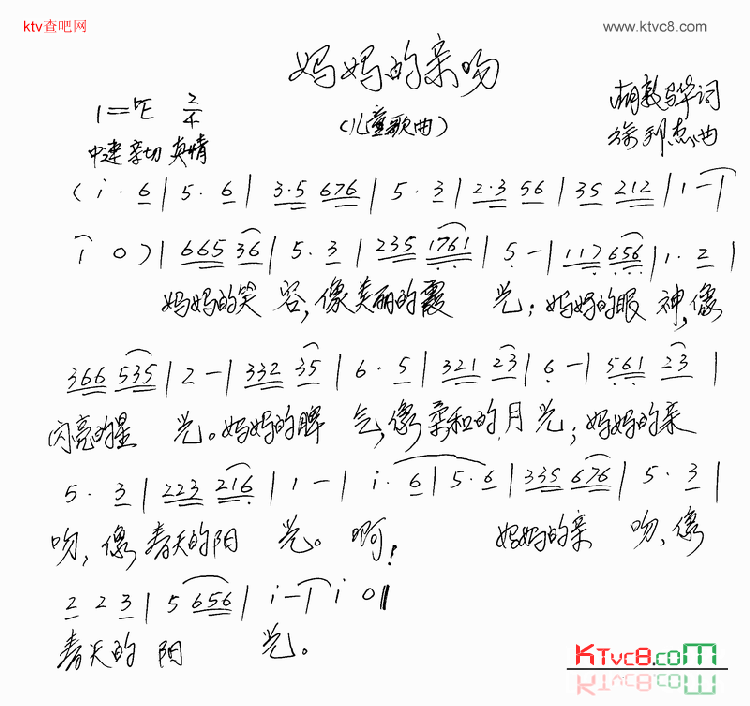 ktv查吧网 www.ktvc8.com
妈妈的亲吻
(儿童歌曲)
1=♭E 2/4
词
中速 亲切 真情
徐邦杰曲
(i·6|5·6|3·5 676|5·3|2·3 56|35 212|1-|
i 0)|665 36|5·3|235 1761|5-|117 656|1·2|
妈妈的笑容,像美丽的霞光;妈妈的眼神,像
366 535|2-|332 35|6·5|321 23|6-|561 23|
闪亮的星光。妈妈的脾气,像柔和的月光;妈妈的亲
5·3|223 216|1-|i·6|5·6|335 676|5·3|
吻,像春天的阳光。啊!妈妈的亲吻,像
2 2 3|5 656|i-|i 0‖
春天的阳光。
KTVC8.COM